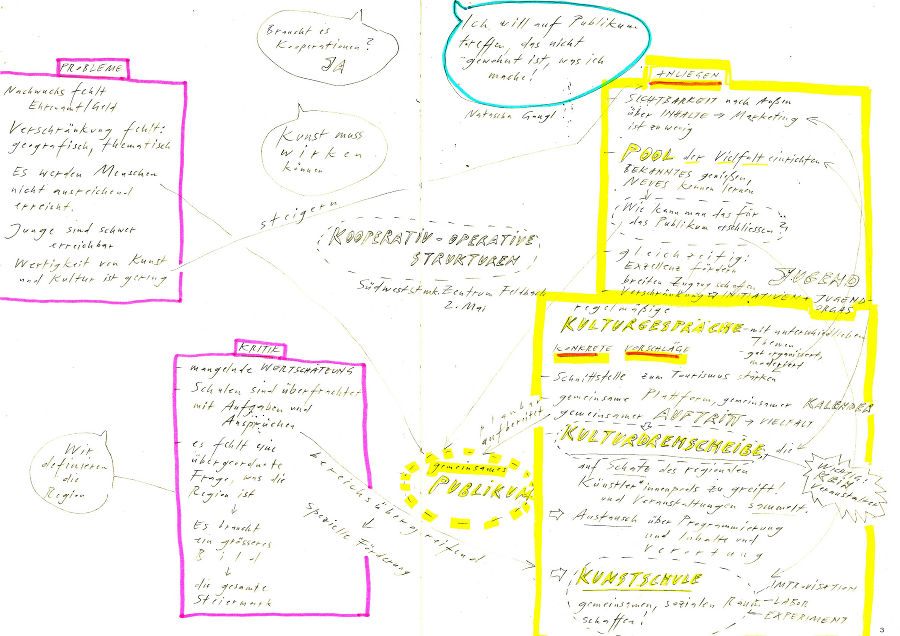 Braucht es
Kooperationen?
JA
Ich will auf Publikum
treffen, das nicht
gewohnt ist, was ich
mache!
Natascha Gangl
Kunst muss
wirken
können
PROBLEME
Nachwuchs fehlt
Ehrenamt/Geld
Verschränkung fehlt:
geografisch, thematisch
Es werden Menschen
nicht ausreichend
erreicht.
Junge sind schwer
erreichbar
Wertigkeit von Kunst
und Kultur ist gering
steigern
KOOPERATIV-OPERATIVE
STRUKTUREN
Südweststmk. Zentrum Feldbach
2. Mai
ANLIEGEN
SICHTBARKEIT nach Außen
über INHALTE → Marketing
ist zu wenig
- POOL der Vielfalt einrichten
BEKANNTES genießen,
NEUES kennen lernen
Wie kann man das für
das Publikum erschliessen?
- gleichzeitig:
Exzellenz fördern
breiten Zugang schaffen
JUGEND
- Verschränkung INITIATIVEN + JUGEND
ORGAS
regelmäßige
KULTURGESPRÄCHE - mit unterschiedlichen
Themen
- gut organisiert,
moderiert
KONKRETE VORSCHLÄGE
- Schnittstelle zum Tourismus stärken
- gemeinsame Plattform, gemeinsamer KALENDER
gemeinsamer AUFTRITT → VIELFALT
KULTURDREHSCHEIBE, die
auf Schatz des regionalen
Künstler*innenpools zu greift!
und Veranstaltungen sammelt.
WICHTIG:
Veranstalter
⇨ Austausch über Programmierung
und Inhalte und
Verortung
⇨ KUNSTSCHULE
gemeinsamen, sozialen Raum
schaffen!
IMPROVISATION
LABOR
EXPERIMENT
KRITIK
- mangelnde WERTSCHÄTZUNG
Schulen sind überfrachtet
mit Aufgaben und
Ansprüchen
- es fehlt eine
übergeordnete
Frage, was die
Region ist
↓
Es braucht
ein grösseres
Bild
↓
die gesamte
Steiermark
Wir
definieren
die
Region
bereichsübergreifend
↓
spezielle Förderung
aufbereitet
gemeinsames
PUBLIKUM
3